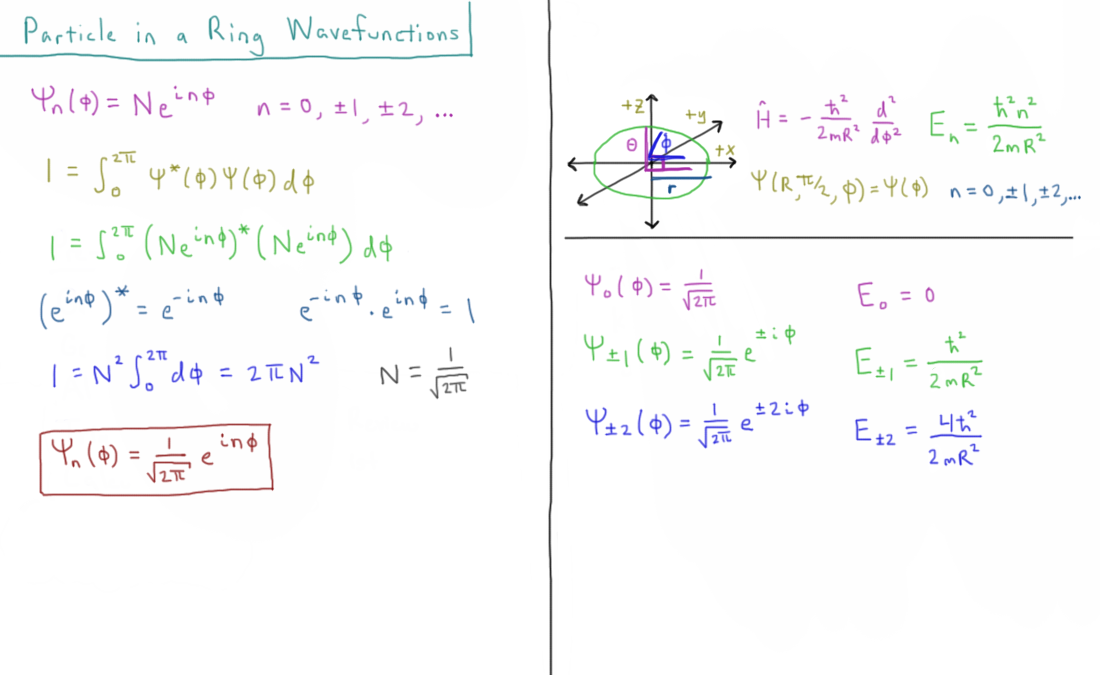 Particle in a Ring Wavefunctions
Ψₙ(ϕ) = Ne^{inϕ}   n = 0, ±1, ±2, ...
1 = ∫₀^{2π} Ψ*(ϕ)Ψ(ϕ)dϕ
1 = ∫₀^{2π} (Ne^{inϕ})* (Ne^{inϕ}) dϕ
(e^{inϕ})* = e^{-inϕ}   e^{-inϕ} · e^{inϕ} = 1
1 = N² ∫₀^{2π} dϕ = 2πN²   N = 1/√2π
Ψₙ(ϕ) = 1/√2π e^{inϕ}
+z
+y
θ
ϕ
+x
r
Ĥ = - ħ²/2mR² d²/dϕ²   Eₙ = ħ²n²/2mR²
Ψ(R, π/2, ϕ) = Ψ(ϕ)   n = 0, ±1, ±2, ...
Ψ₀(ϕ) = 1/√2π   E₀ = 0
Ψ_{±1}(ϕ) = 1/√2π e^{±iϕ}   E_{±1} = ħ²/2mR²
Ψ_{±2}(ϕ) = 1/√2π e^{±2iϕ}   E_{±2} = 4ħ²/2mR²